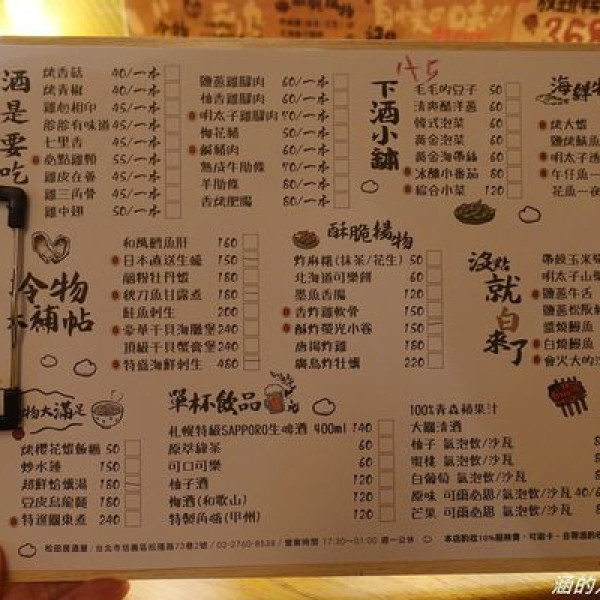 酒是要吃
烤香菇 40/一本
烤青椒 40/一本
雞心相印 45/一本
胗胗有味道 45/一本
七里香 45/一本
必點雞頸 55/一本
雞皮在養 45/一本
雞三角骨 45/一本
雞中翅 50/一本
鹽蔥雞腿肉 60/一本
柚香雞腿肉 60/一本
明太子雞腿肉 70/一本
梅花豬 50/一本
鹹豬肉 60/一本
熟成牛肋條 70/一本
羊肋條 80/一本
香烤肥腸 80/一本
下酒小舖
毛毛的豆子 50
清爽醋洋蔥 60
韓式泡菜 60
黃金泡菜 60
黃金海帶絲 60
冰釀小番茄 80
綜合小菜 120
海鮮
烤大蝦
鹽烤鯖魚
明太子
午仔魚一
花魚一夜
冷物
補帖
和風鱈魚肝 160
日本直送生蠔 150
胭粉牡丹蝦 180
秋刀魚甘露煮 180
鮭魚刺生 200
豪華干貝海膽堡 240
頂級干貝蟹膏堡 240
特盛海鮮刺生 480
酥脆揚物
炸麻糬(抹茶/花生) 50
北海道可樂餅 60
墨魚香腸 120
香炸雞軟骨 150
酥炸螢光小卷 150
唐揚炸雞 180
廣島炸牡蠣 220
沒點就白來了
帶殼玉米
明太子山
鹽蔥牛舌
鹽蔥松阪
醬燒鰻魚
白燒鰻魚
會火大的
物大滿足
烤櫻花蝦飯糰 50
炒水蓮 150
超鮮蛤蠣湯 180
豆皮烏龍麵 180
特選關東煮 240
單杯飲品
札幌特級SAPPORO生啤酒 400ml 140
原萃綠茶 60
可口可樂 60
柚子酒 120
梅酒(和歌山) 120
特製角嗨(甲州) 120
100%青森蘋果汁
大關清酒
柚子 氣泡飲/沙瓦
蜜桃 氣泡飲/沙瓦
白葡萄 氣泡飲/沙瓦
原味 可爾必思/氣泡飲/沙瓦
芒果 可爾必思/氣泡飲/沙瓦
松田居酒屋/台北市信義區松隆路73巷2號/02-2760-8538/營業時間 17:30~01:00 週一公休
本店酌收10%服務費，可刷卡，自帶酒酌收